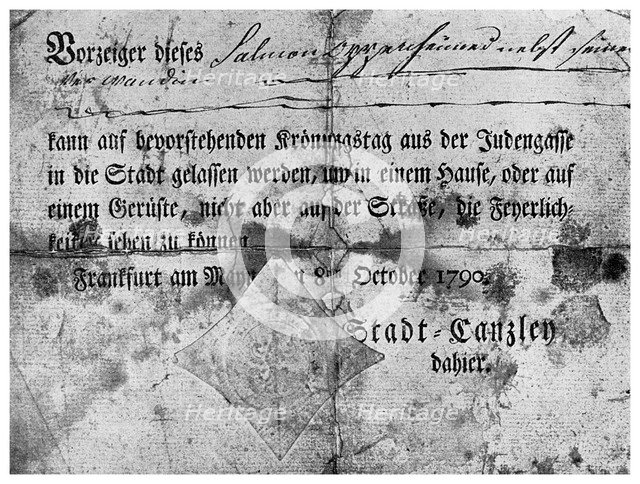 Vorzeiger dieses Salmon Oppenheimer nebst seinen
Verwandten
kann auf bevorstehenden Krönungstag aus der Judengasse
in die Stadt gelassen werden, um in einem Hause, oder auf
einem Gerüste, nicht aber auf der Straße, die Feyerlich-
keiten sehen zu können
Frankfurt am Mayn den 8ten October 1790.
Stadt-Canzley
dahier.